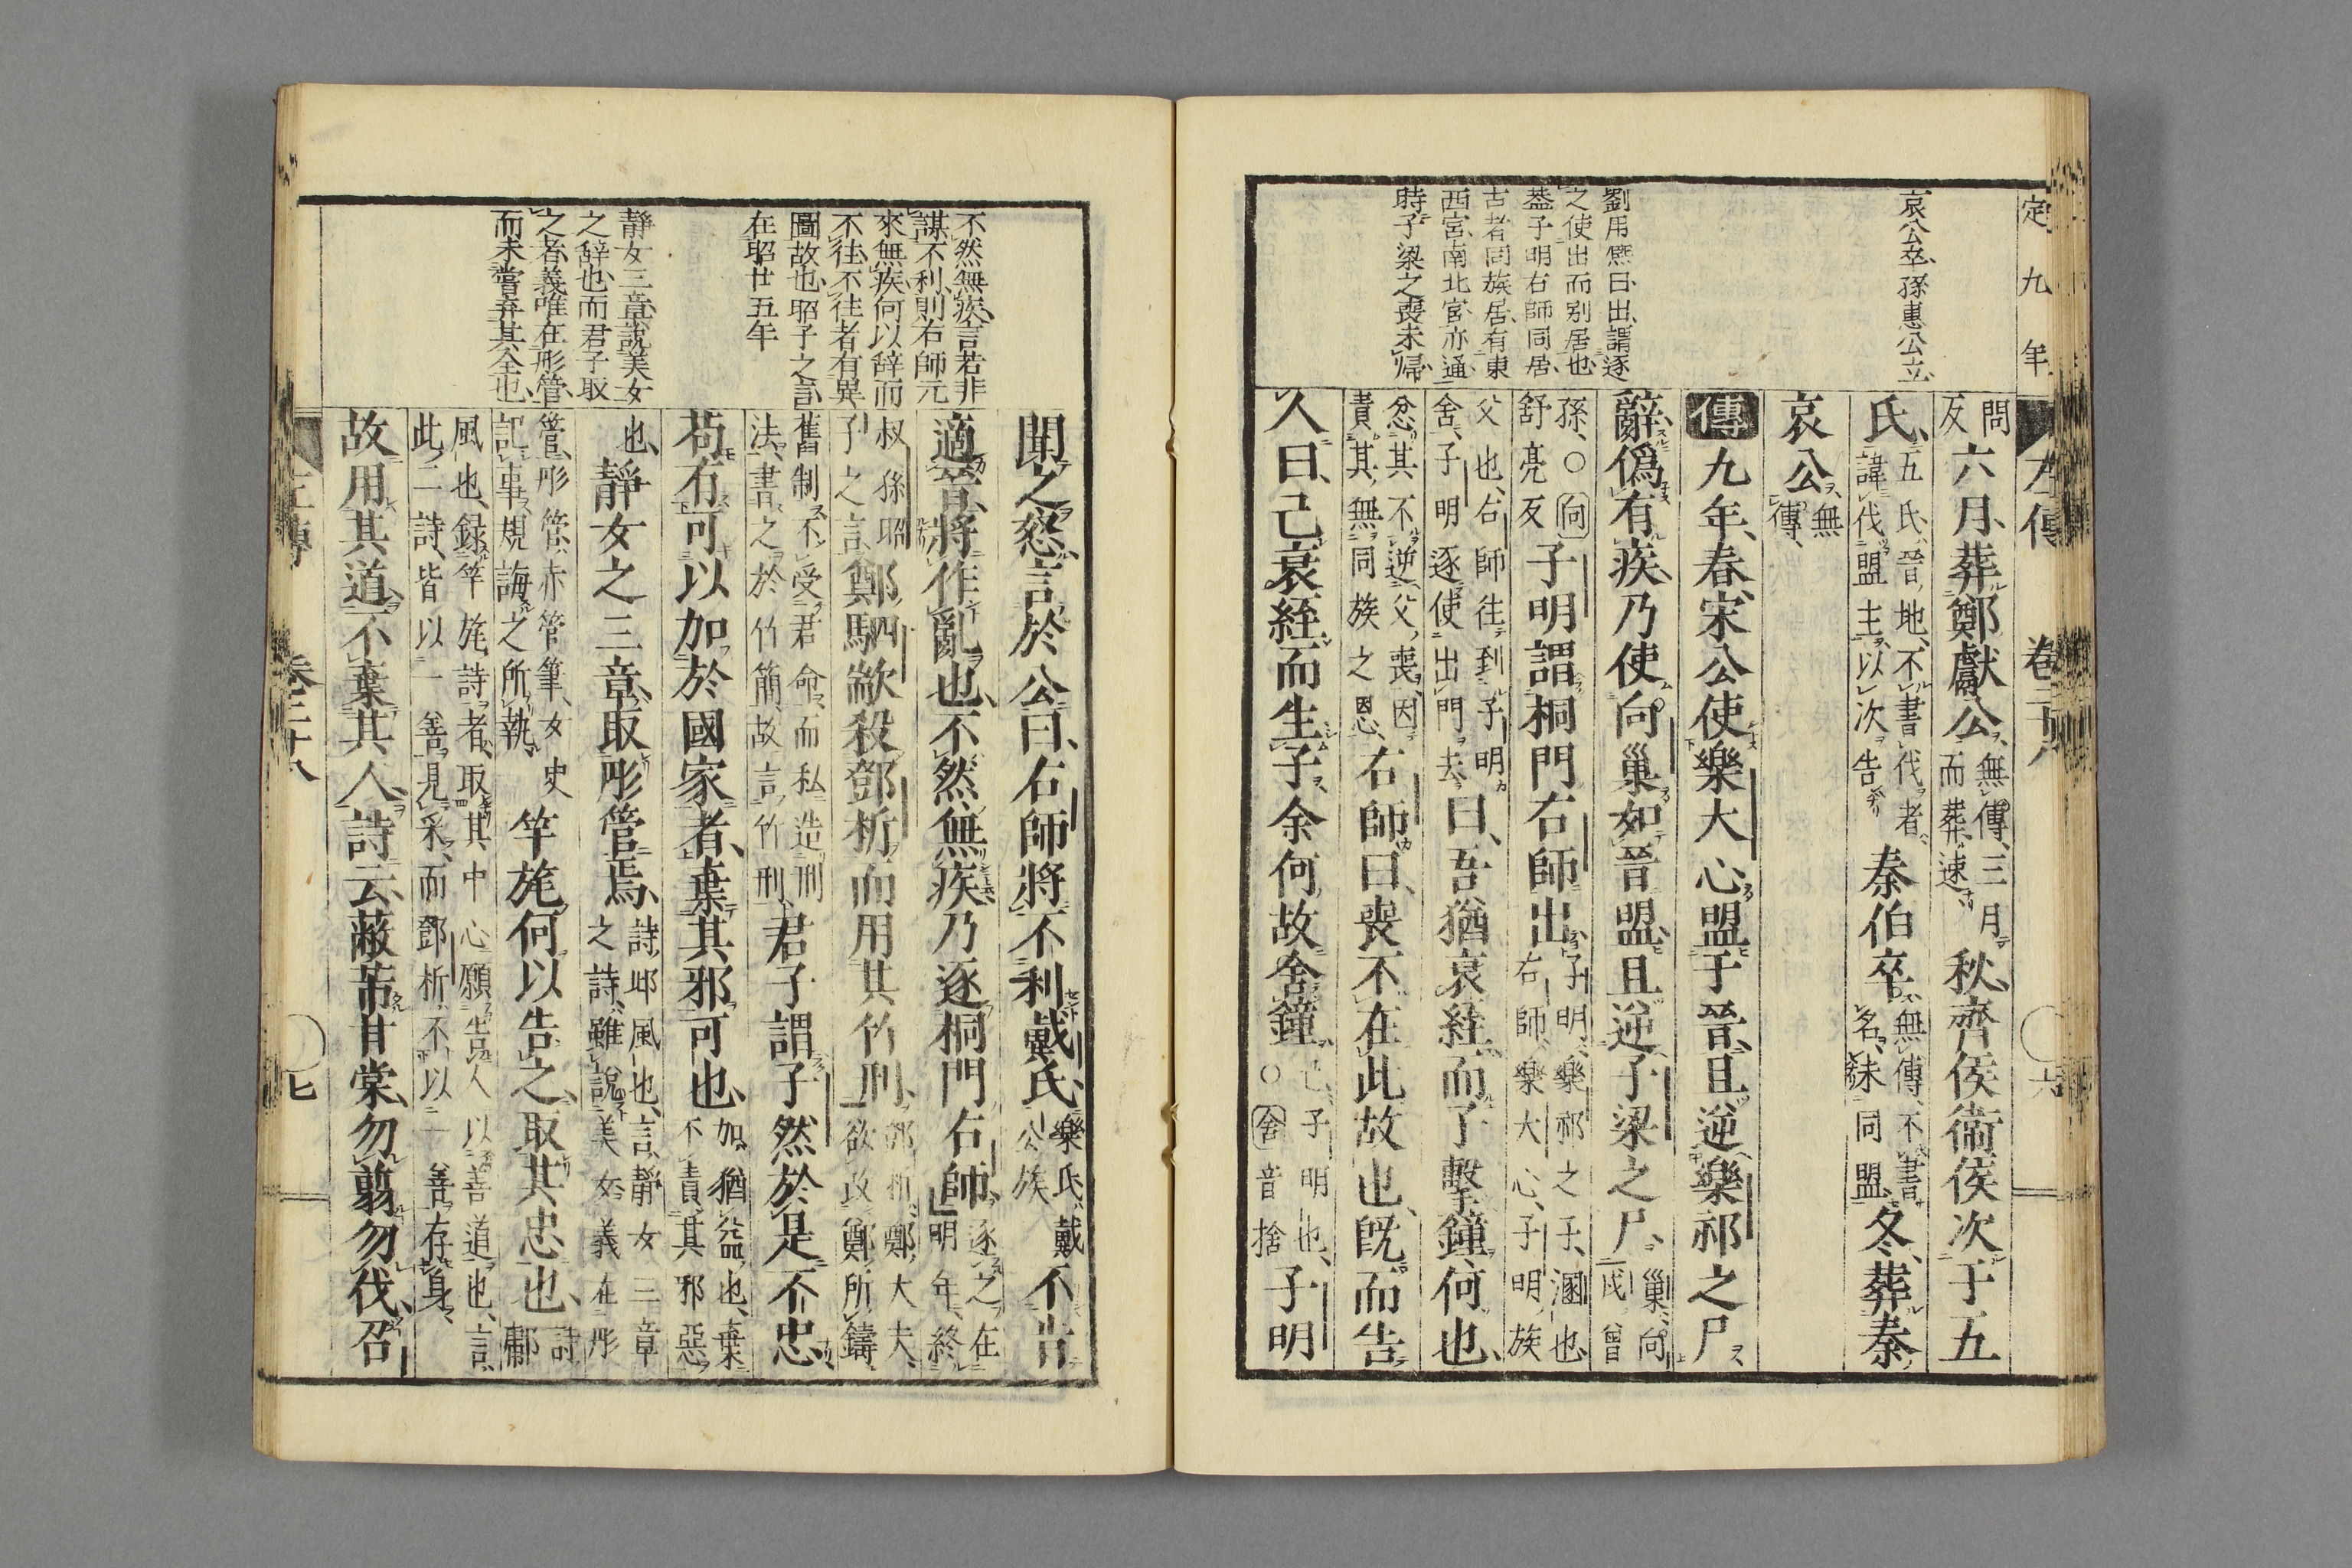 定九年
左傳
卷二十八
六
哀公卒孫惠公立
劉用熈曰出謂逐
之使出而別居也
葢子明右師同居
古者同族居有東
西宮南北宮亦通
時子梁之喪未歸
問
反
六月葬鄭獻公
無傳三月
而葬速
秋齊侯衞侯次于五
氏
五氏晉地不書伐者
諱伐盟主以次告
秦伯卒
無傳不書
名未同盟
冬葬秦
哀公
無
傳
傳九年春宋公使樂大心盟于晉且逆樂祁之尸
辭僞有疾乃使向巢如晉盟且逆子梁之尸
巢向
戌曾
孫○向
舒亮反
子明謂桐門右師出
子明樂祁之子溷也
右師樂大心子明族
父也右師往到子明
舍子明逐使出門去
曰吾猶衰絰而子擊鐘何也
忿其不逆父喪因
責其無同族之恩
右師曰喪不在此故也旣而告
人曰己衰絰而生子余何故舍鐘
己子明也
○舍音捨
子明
不然無疾言若非
謀不利則右師元
來無疾何以辭而
不往不往者有異
圖故也昭子之言
在昭廿五年
靜女三章說美女
之辭也而君子取
之者義唯在彤管
而未嘗弃其全也
聞之怒言於公曰右師將不利戴氏
樂氏戴
公族
不肯
適晉將作亂也不然無疾乃逐桐門右師
逐之在
明年終
叔孫昭
子之言
鄭駟歂殺鄧析而用其竹刑
鄧析鄭大夫
欲改鄭所鑄
舊制不受君命而私造刑
法書之於竹簡故言竹刑
君子謂子然於是不忠
苟有可以加於國家者棄其邪可也
加猶益也棄
不責其邪惡
也
靜女之三章取彤管焉
詩邶風也言靜女三章
之詩雖說美女義在彤
管彤管赤管筆女史
記事規誨之所執
竿旄何以告之取其忠也
詩
鄘
風也録竿旄詩者取其中心願告人以善道也言
此二詩皆以一善見采而鄧析不以一善存身
故用其道不棄其人詩云蔽芾甘棠勿翦勿伐召
左傳
卷二十八
七